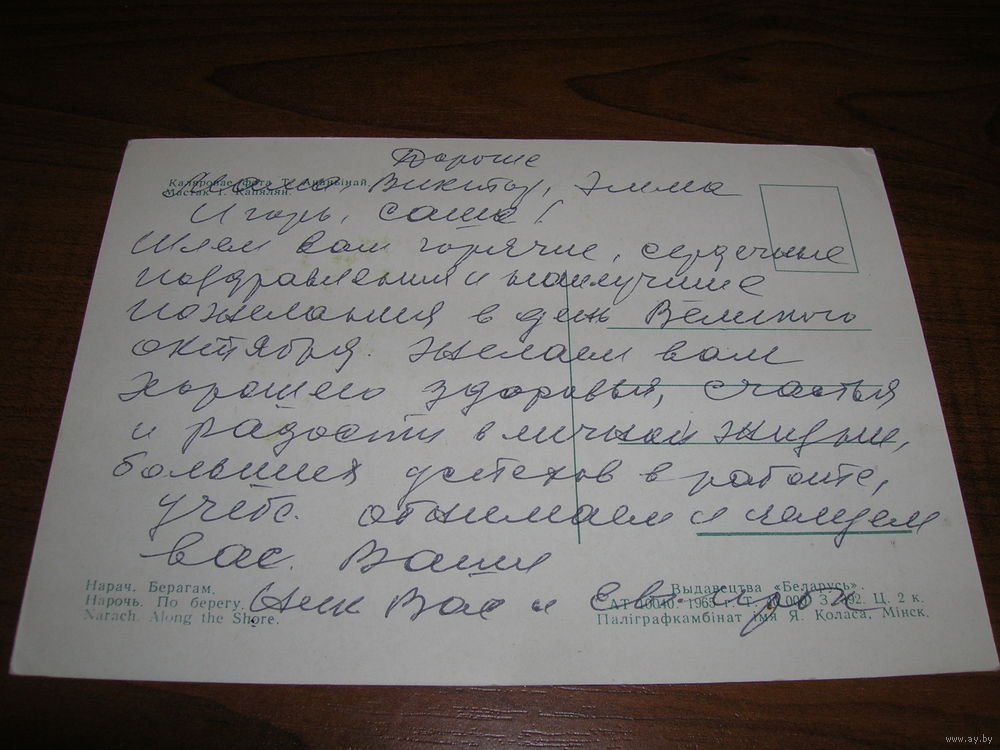 Дорогие
Каляровае фота Т. Ананьінай.
Мастак І. Капялян.
Виктор, Эмма
Игорь, Саша!
Шлем вам горячие, сердечные
поздравления и наилучшие
пожелания в день Великого
октября. Желаем вам
хорошего здоровья, счастья
и радости в личной жизни,
больших успехов в работе,
учебе. обнимаем и целуем
вас. Ваши
Нарач. Берагам.
Нарочь. По берегу.
Narach. Along the Shore.
Ник Вас и
Выдавецтва «Беларусь».
АТ 10040. 1965 г. Т. 000 З. 92. Ц. 2 к.
Паліграфкамбінат імя Я. Коласа, Мінск.
www.ay.by